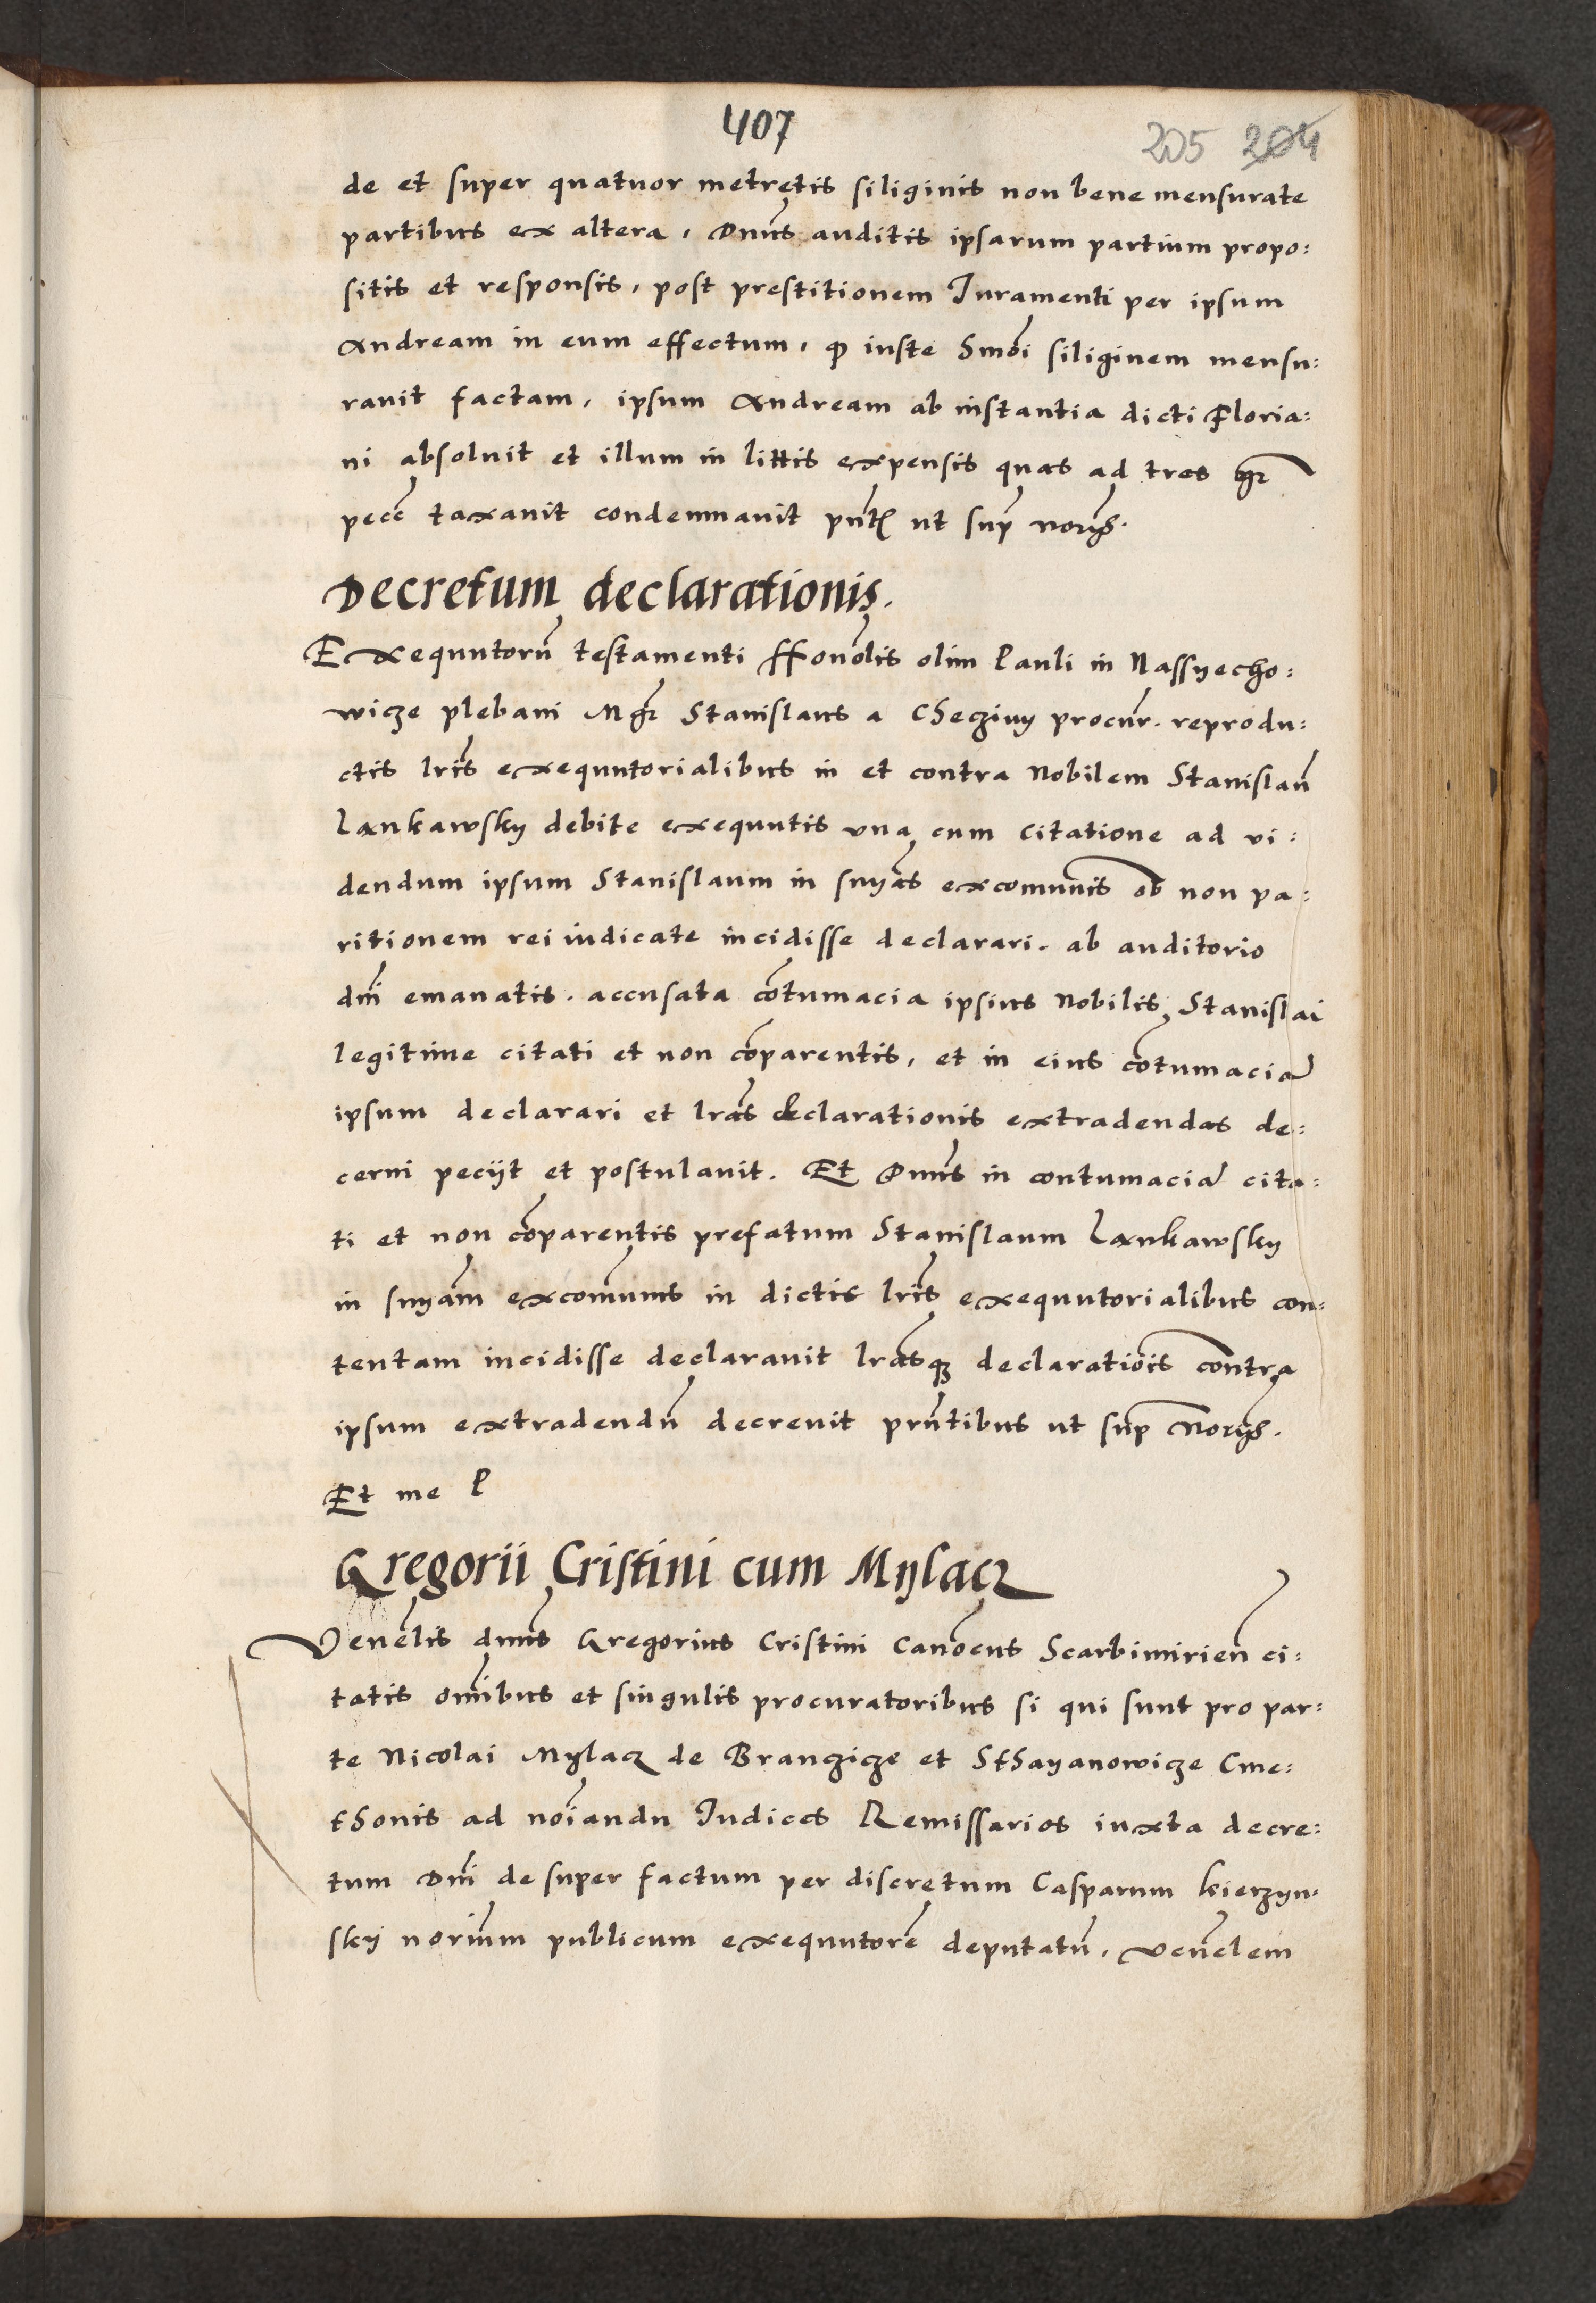 407
205 204
de et super quatuor metretis siliginis non bene mensurate
partibus ex altera, Dnus auditis ipsarum partium propo:
sitis et responsis, post prestitionem Juramenti per ipsum
Andream in eum effectum, ꝙ iuste Smoi siliginem mensu:
ravit factam, ipsum Andream ab instantia dicti Floria:
ni absoluit et illum in littis expensis quas ad tres gr
pecc̄ taxavit condemnavit pntꝭ ut sup norijs.
Decretum declarationis.
Exequutorū testamenti Honōlis olim Pauli in Nassyecho:
wicze plebani Mgr Stanislaus a Checziny procūr. reprodu:
ctis lrīs exequutorialibus in et contra Nobilem Stanislaū
Lankawsky debite exequutis una cum citatione ad vi:
dendum ipsum Stanislaum in snyās excomunis ob non pa:
ritionem rei iudicate incidisse declarari. ab auditorio
dnī emanatis. accusata cōtumacia ipsius Nobilis Stanislai
legitime citati et non cōparentis, et in eius cōtumaciā
ipsum declarari et lrās declarationis extradendas de:
cerni peciit et postulavit. Et Dnus in contumaciā cita:
ti et non cōparentis prefatum Stanislaum Lankawsky
in snyām excomunis in dictis lrīs exequutorialibus con:
tentam incidisse declaravit lrāsqꝫ declaratiōis contra
ipsum extradendū decrevit prntibus ut sup Norijs.
Et me P
Gregorii Cristini cum Mylacz
Venēlis dnus Gregorius Cristini Canōcus Scarbimirieñ ci:
tatis omībus et singulis procuratoribus si qui sunt pro par:
te Nicolai Mylacz de Branczicze et Sthayanowicze Cme:
thonis ad noīandu Judices Remissarios iuxta decre:
tum Dnī de super factum per discretum Casparum kierzyn:
sky norium publicum exequutorē deputatū, venēlem